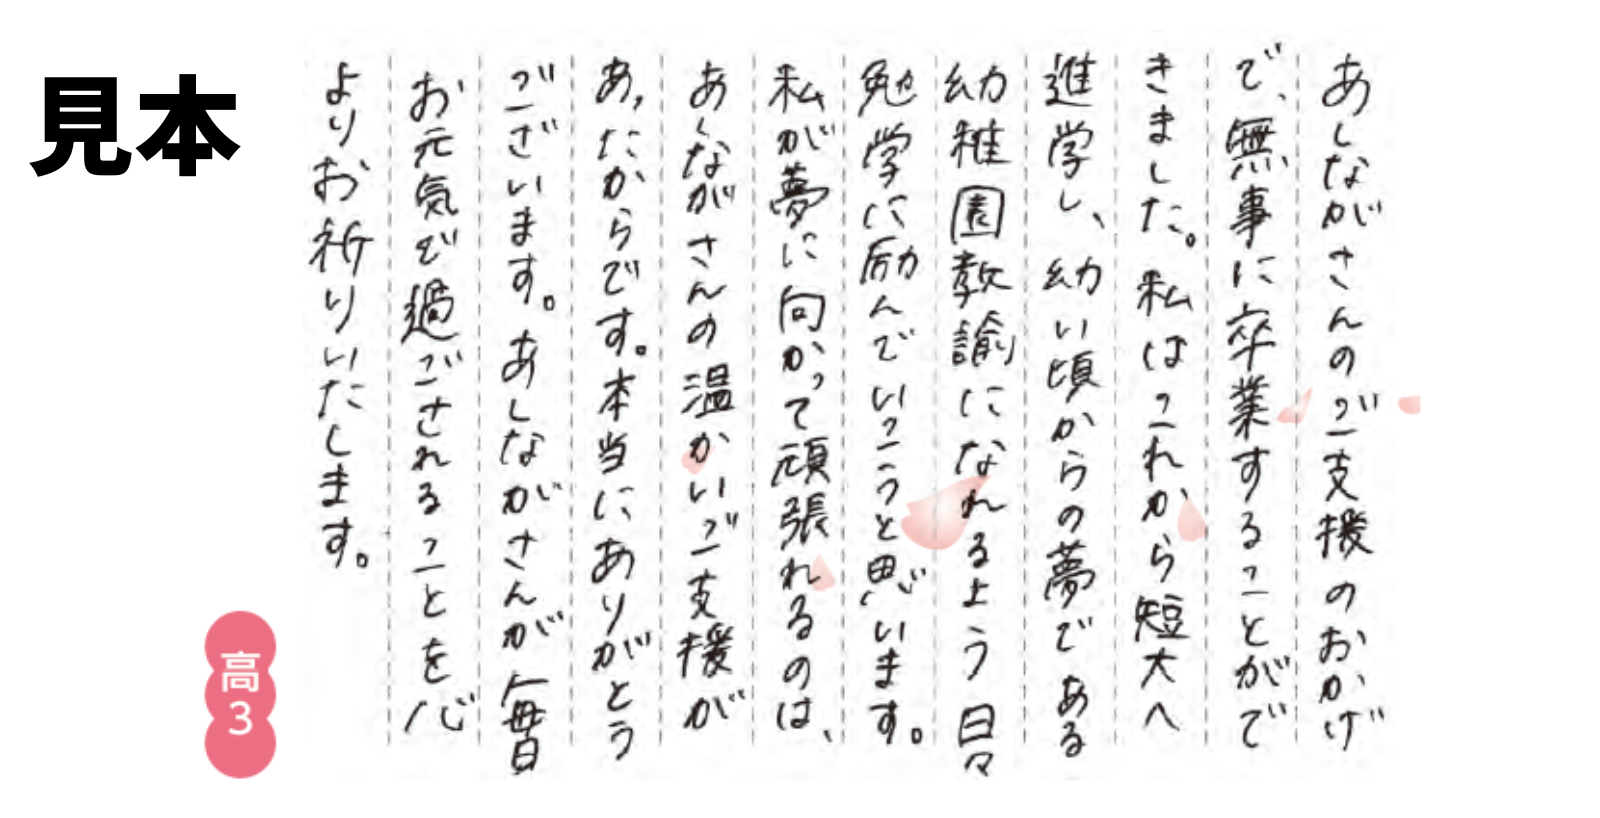 見本
あしながさんのご支援のおかげ
で、無事に卒業することがで
きました。私はこれから短大へ
進学し、幼い頃からの夢である
幼稚園教諭になれるよう日々
勉学に励んでいこうと思います。
私が夢に向かって頑張れるのは、
あしながさんの温かいご支援が
あったからです。本当にありがとう
ございます。あしながさんが毎日
お元気で過ごされることを心
よりお祈りいたします。
高3